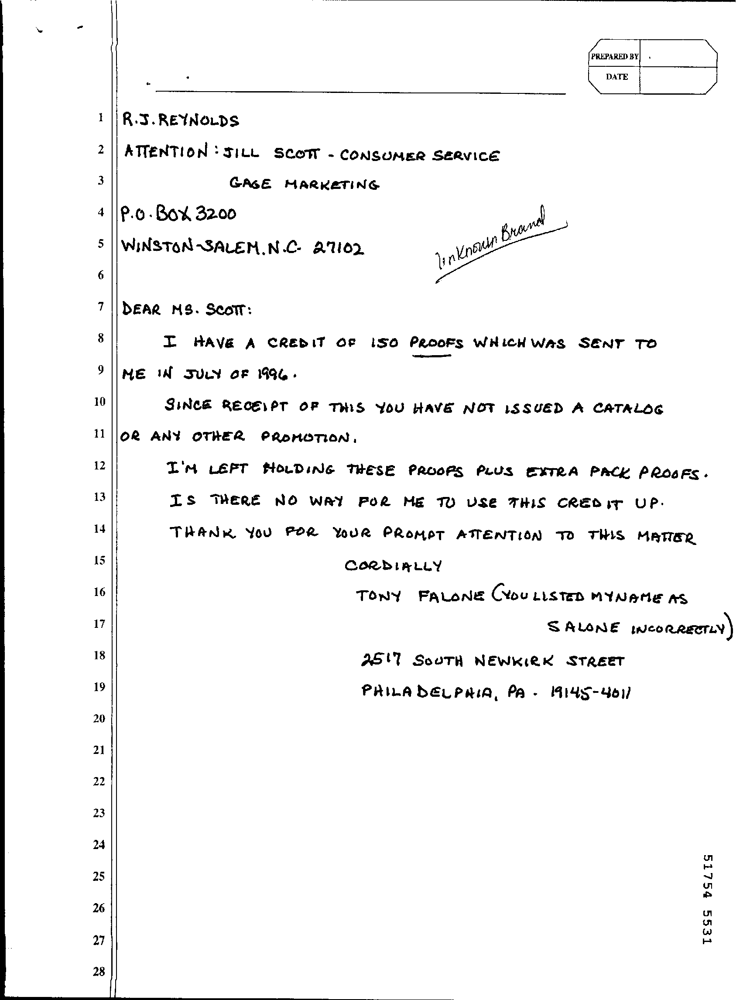 PREPARED BY
DATE
1 R.J. REYNOLDS
2 ATTENTION: JILL SCOTT - CONSUMER SERVICE
3 GAGE MARKETING
4 P.O. BOX 3200
5 WINSTON-SALEM, N.C. 27102
Unknown Brand
6
7 DEAR MS. SCOTT:
8 I HAVE A CREDIT OF 150 PROOFS WHICH WAS SENT TO
9 ME IN JULY OF 1996.
10 SINCE RECEIPT OF THIS YOU HAVE NOT ISSUED A CATALOG
11 OR ANY OTHER PROMOTION.
12 I'M LEFT HOLDING THESE PROOFS PLUS EXTRA PACK PROOFS.
13 IS THERE NO WAY FOR ME TO USE THIS CREDIT UP.
14 THANK YOU FOR YOUR PROMPT ATTENTION TO THIS MATTER
15 CORDIALLY
16 TONY FALONE (YOU LISTED MY NAME AS
17 SALONE INCORRECTLY)
18 2517 SOUTH NEWKIRK STREET
19 PHILADELPHIA, PA. 19145-4011
20
21
22
23
24
25
26
27
28
51754 5531